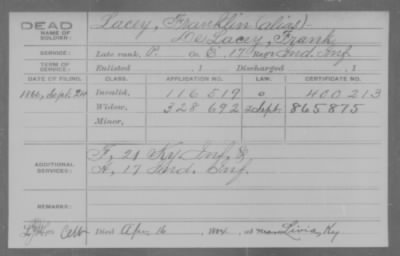 DEAD
NAME OF SOLDIER:
Lacey, Franklin (alias)-
De Lacey, Frank
SERVICE:
Late rank, P. Co. E, 17 Ind. Inf
TERM OF SERVICE:
Enlisted , 1 Discharged , 1
DATE OF FILING. CLASS. APPLICATION NO. LAW. CERTIFICATE NO.
Sept. Invalid, 116 519 400 213
Widow, 328 692 2 Sept. 865875
Minor,
ADDITIONAL SERVICES:
F, 21 Ky Inf, &
H, 17 Ind. Inf.
REMARKS:
Died Apr 16, 1904, at near Livia, Ky